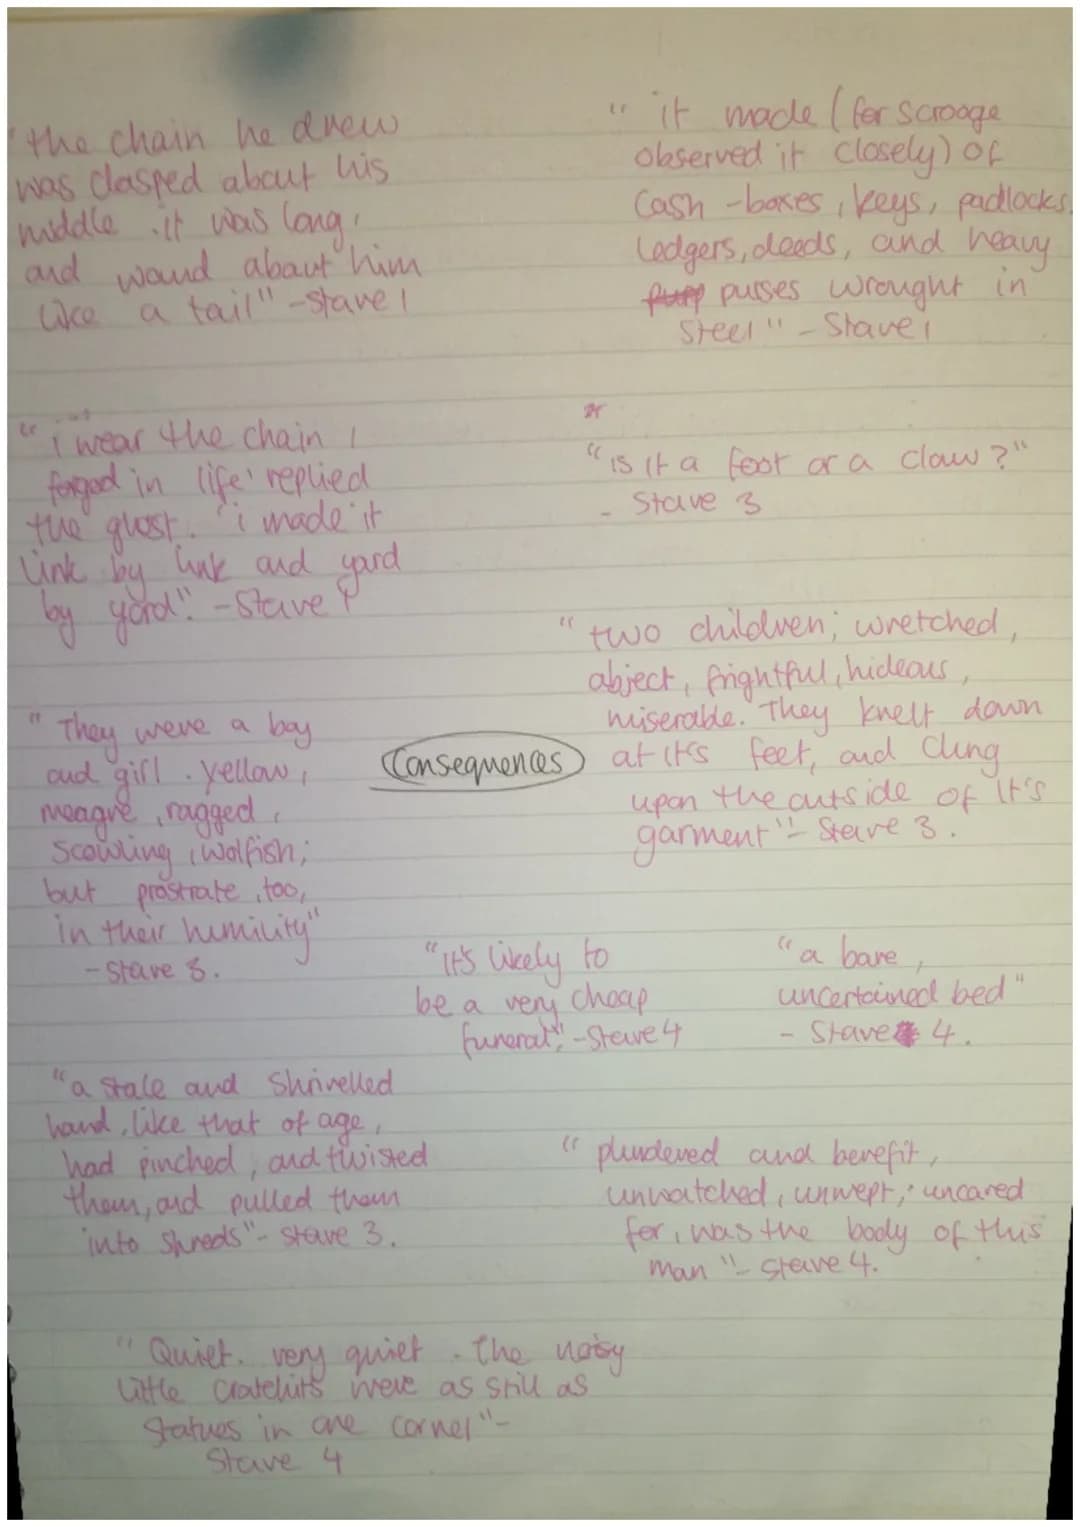 "the chain he drew
was clasped about his
middle. it was long,
and wound about him
like a tail" - Stave 1
" it made (for Scrooge
observed it closely) of
cash-boxes, keys, padlocks,
ledgers, deeds, and heavy
purses wrought in
steel" - Stave 1
"i wear the chain I
forged in life' replied
the ghost. 'i made it
link by link and yard
by yard". - Stave 1
"is it a foot or a claw?"
- Stave 3
"two children; wretched,
abject, frightful, hideous,
miserable. They knelt down
at it's feet, and clung
upon the outside of it's
garment" - Stave 3.
"They were a boy
and girl. yellow,
meagre, ragged,
scowling, wolfish;
but prostrate, too,
in their humility"
- Stave 3.
Consequences
"it's likely to
be a very cheap
funeral". - Stave 4
"a bare,
uncertained bed"
- Stave 4.
"a stale and shrivelled
hand, like that of age,
had pinched, and twisted
them, and pulled them
into shreds" - Stave 3.
"plundered and bereft,
unwatched, unwept, uncared
for, was the body of this
man" - Stave 4.
"Quiet. very quiet. The noisy
little cratchits were as still as
statues in one corner" -
Stave 4